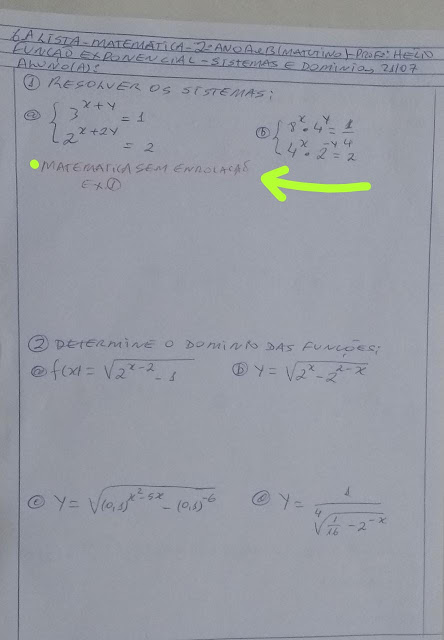 6ª LISTA - MATEMÁTICA - 2º ANO A e B (MATUTINO) - PROFº: HELIO
FUNÇÃO EXPONENCIAL - SISTEMAS E DOMÍNIO, 21/07
ALUNO(A):
① RESOLVER OS SISTEMAS:
ⓐ { 3^(x+y) = 1
2^(x+2y) = 2
ⓑ { 8^x · 4^y = 1/4
4^x · 2^(-y) = 2
• MATEMATICA SEM ENROLAÇAÕ
EX ①
② DETERMINE O DOMÍNIO DAS FUNÇÕES:
ⓐ f(x) = √(2^(x-2) - 1)
ⓑ Y = √(2^x - 2^(2-x))
ⓒ Y = √((0,1)^(x²-5x) - (0,1)^(-6))
ⓓ Y = 1/⁴√(1/16 - 2^(-x))